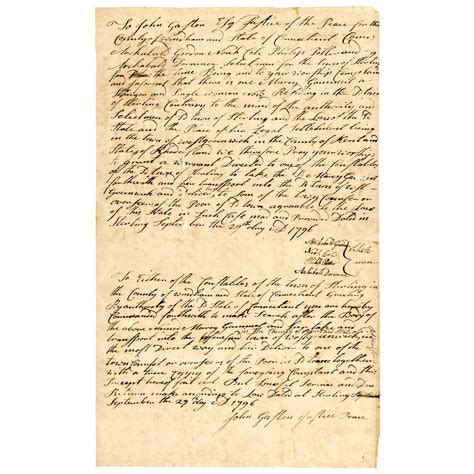 To John Gaston Esq Justice of the Peace for the
County of Windham and State of Connecticut Come
Archabald Gordon Noah Cole Philip Potter and
Archabald Dorrance Selectmen for the town of Sterling
for the time Being and to your worship Complain
and Informs that there is one Marcy Gammett a
Stranger and Single woman now Residing in the D town
of Sterling Contrary to the mind of the authority and
Selectmen of D town of Sterling and the Law of the D
State and the Place of her Legal Settlement being
in the town of West greenwich in the County of Kent and
State of Rhode Island we therefore Pray your worship
to grant a warrant Directed to one of the Constables
of the D town of Sterling to take the D Marcy Gammett
forthwith and her transport into the D town of west
Greenwich and deliver to some of the overseers
of the Poor of D town agreeable to the Law
of this State in Such Case made and Provided Dated in
Sterling September the 29th day AD 1796
Archabald Gordon
Noah Cole
Philip Potter
Archabald Dorrance
Select
men
To Either of the Constables of the town of Sterling in
the County of Windham and State of Connecticut Greeting
By authority of the D State of Connecticut you are hereby
Commanded forthwith to make Search after the Body of
the above named Marcy Gammett and her take and
transport into the aforesaid town of West greenwich in
in the County of Kent
the most Direct way and her Deliver to one of the
town Counsel or overseers of the Poor in D town together
with a true Copy of the foregoing Complaint and this
Precept hereof fail not But Lawful Service and Due
Return make according to Law Dated at Sterling
September the 29 day AD 1796
John Gaston Justice Peace